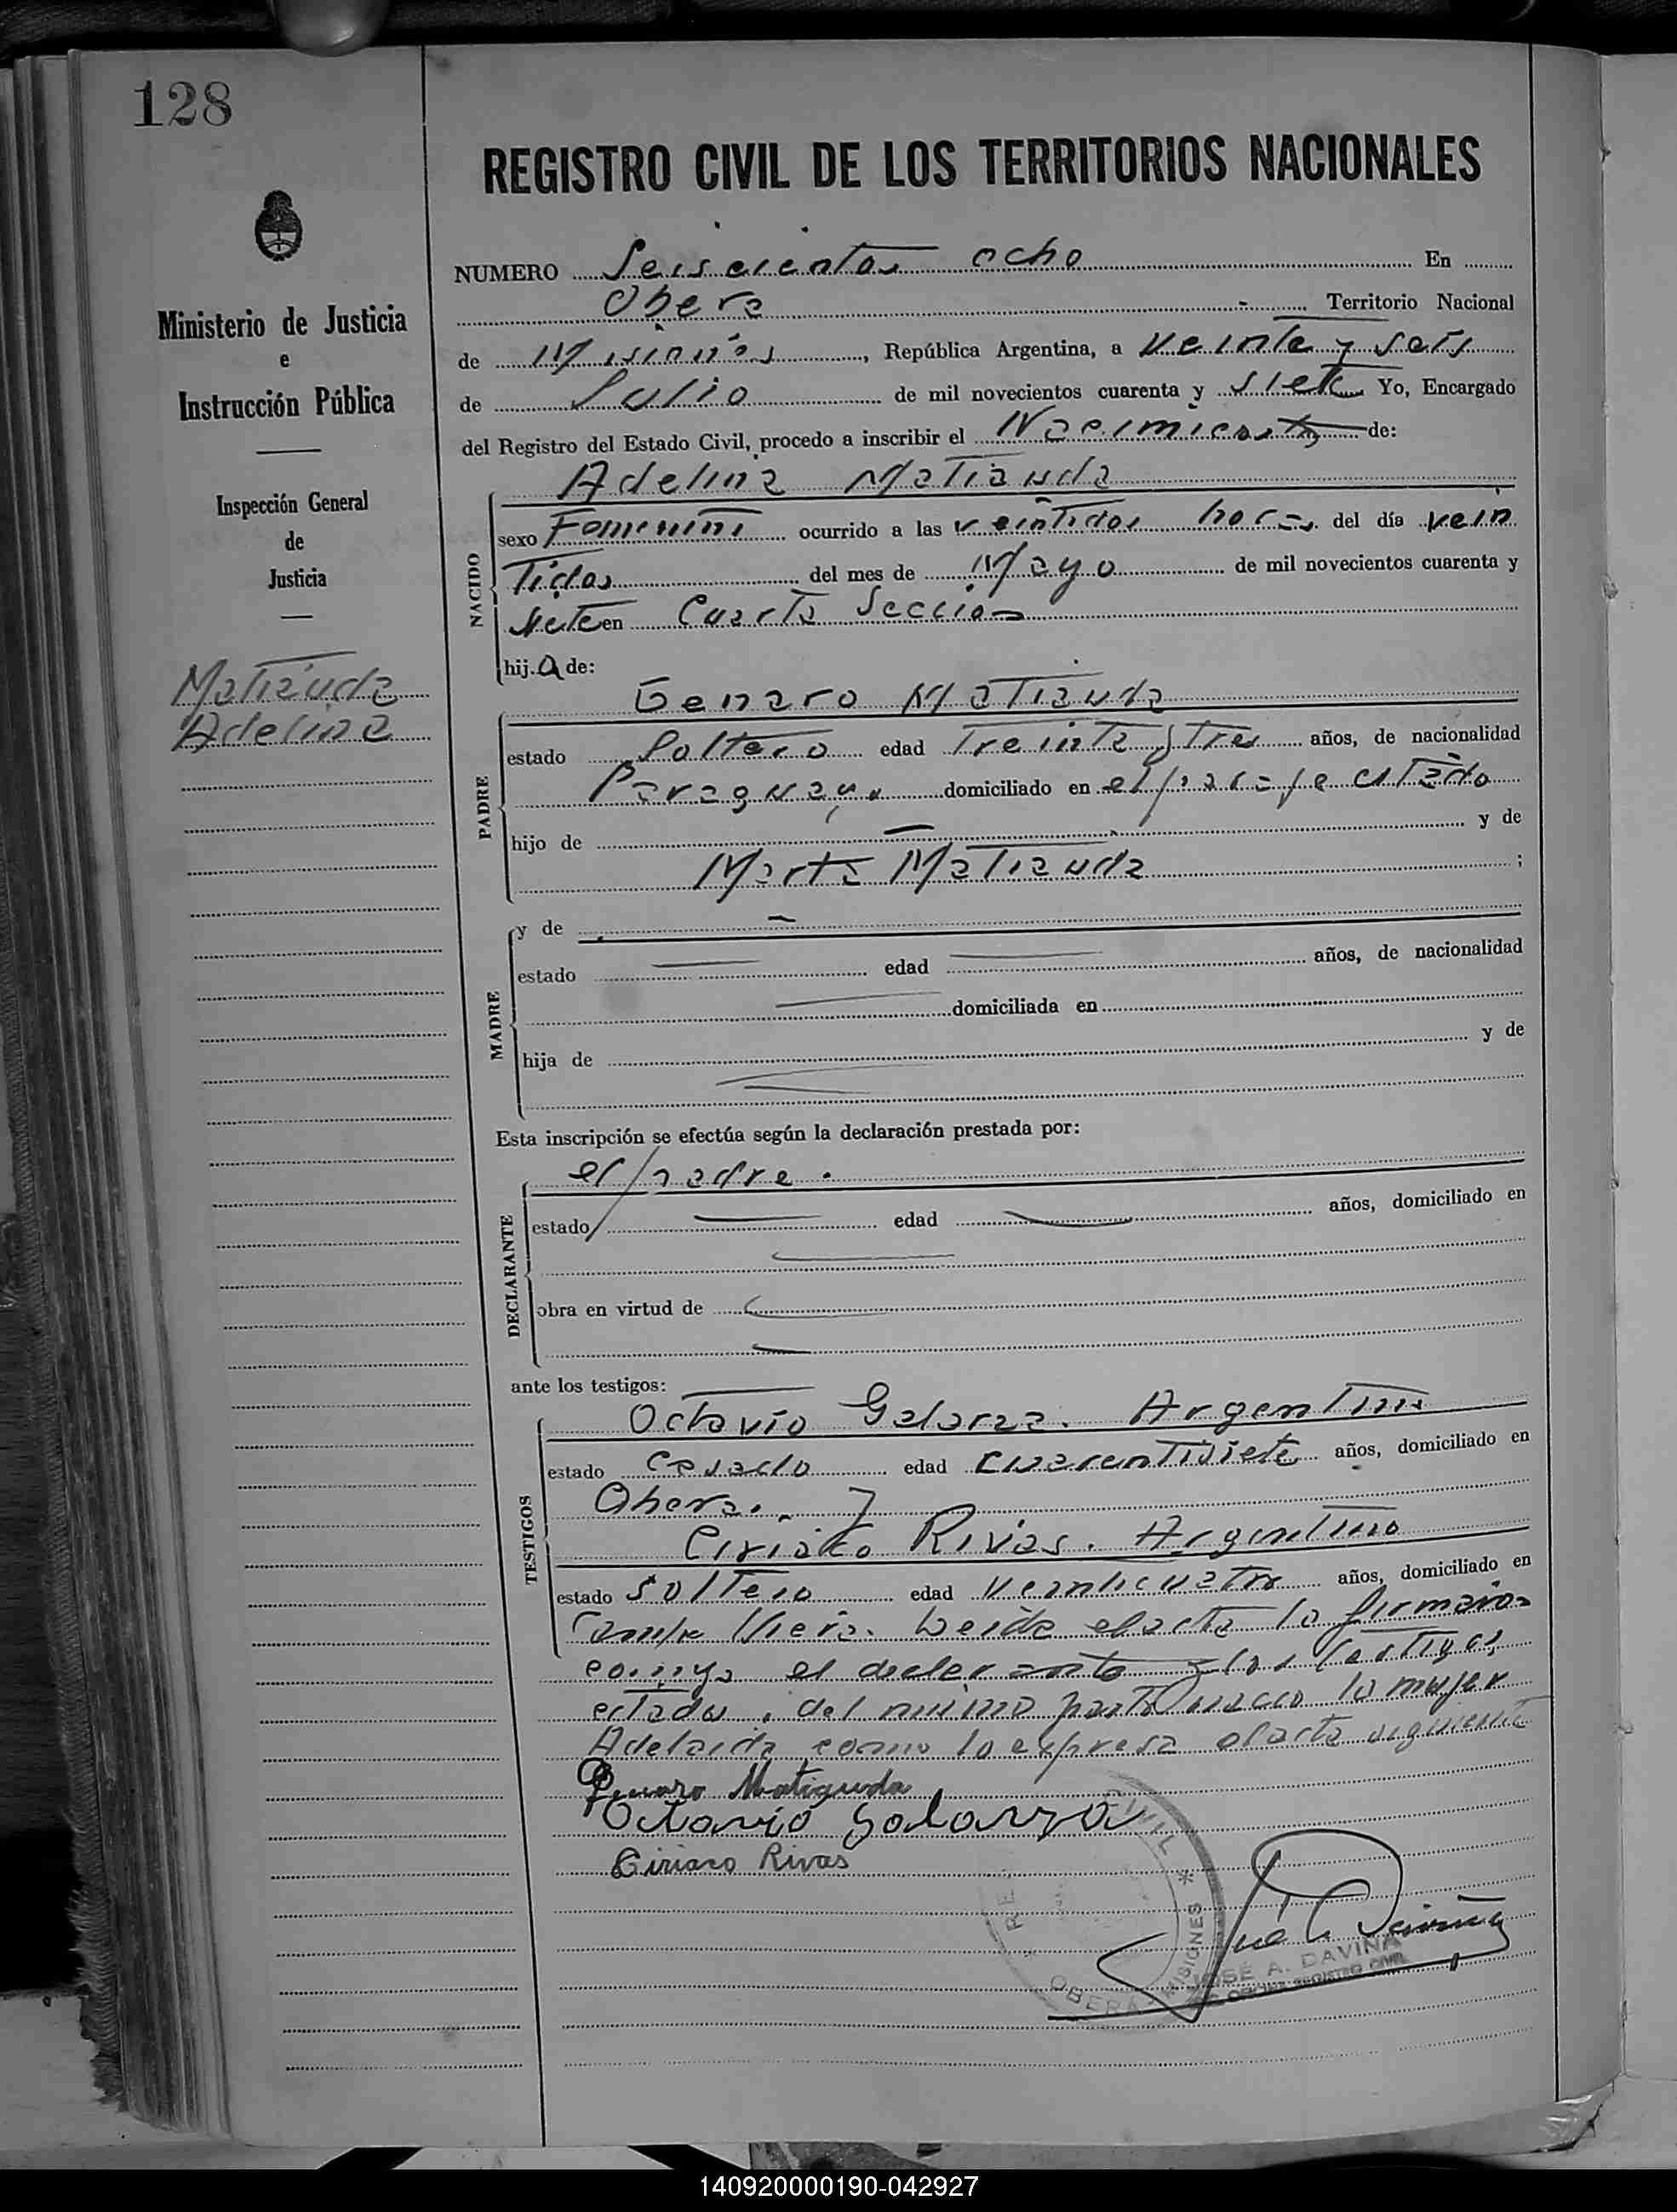 128
REGISTRO CIVIL DE LOS TERRITORIOS NACIONALES
Ministerio de Justicia
e
Instrucción Pública
Inspección General
de
Justicia
Matiauda
Adelina
NUMERO Seiscientos ocho En
Obera Territorio Nacional
de Misiones, República Argentina, a veinte y seis
de Julio de mil novecientos cuarenta y siete Yo, Encargado
del Registro del Estado Civil, procedo a inscribir el Nacimiento de:
NACIDO
Adelina Matiauda
sexo Femenino ocurrido a las veintidos horas del día vein
tidos del mes de Mayo de mil novecientos cuarenta y
siete en Cuarta Seccion
hija de:
PADRE
Genaro Matiauda
estado Soltero edad Treinta y Tres años, de nacionalidad
Paraguaya domiciliado en el paraje citado
hijo de y de
Marta Matiauda ;
MADRE
y de
estado edad años, de nacionalidad
domiciliada en
hija de y de
Esta inscripción se efectúa según la declaración prestada por:
DECLARANTE
el padre.
estado edad años, domiciliado en
obra en virtud de
ante los testigos:
TESTIGOS
Octavio Galarza. Argentino
estado Casado edad cuarentisiete años, domiciliado en
Obera. y
Ciriaco Rivas. Argentino
estado Soltero edad veinticuatro años, domiciliado en
Campo Viera. Leida el acta la firmaron
conmigo el declarante y los testigos
citados. del mismo parto nacio la mujer
Adelaida como lo expresa el acta siguiente
Genaro Matiauda
Octavio Galarza
Ciriaco Rivas
CIVIL * MISIONES
OBERA
JOSÉ A. DAVIÑA
REGISTRO CIVIL
140920000190-042927